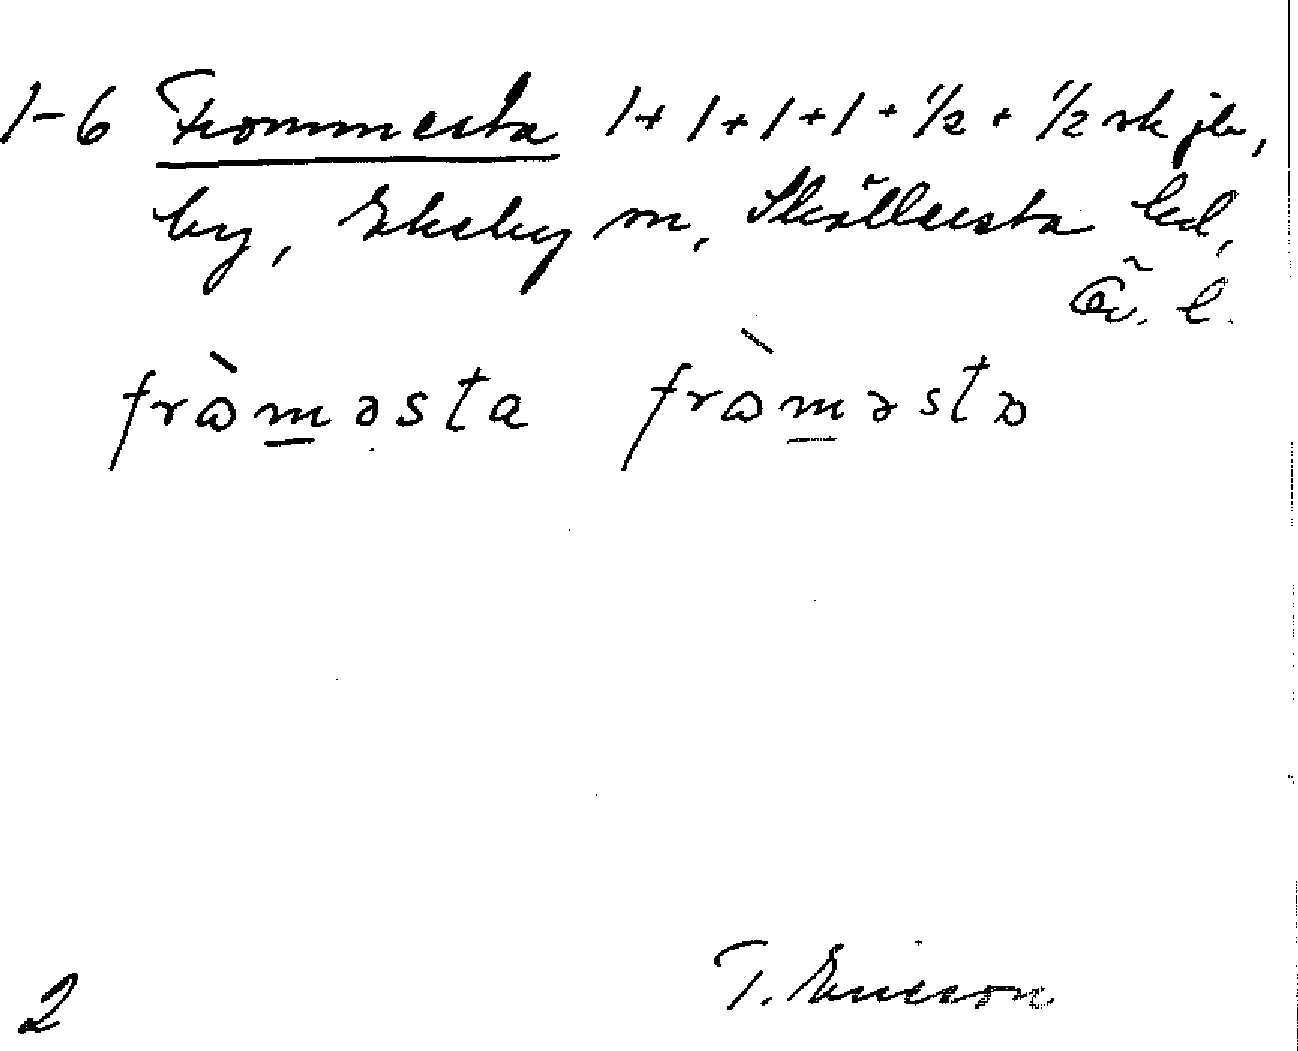 1-6 Frommesta 1 + 1 + 1 + 1 + 1/2 + 1/2 sk jb,
by, Ekeby sn, Sköllersta hd,
Ö. l.
fròməsta fròməstɒ
T. Ericson
2